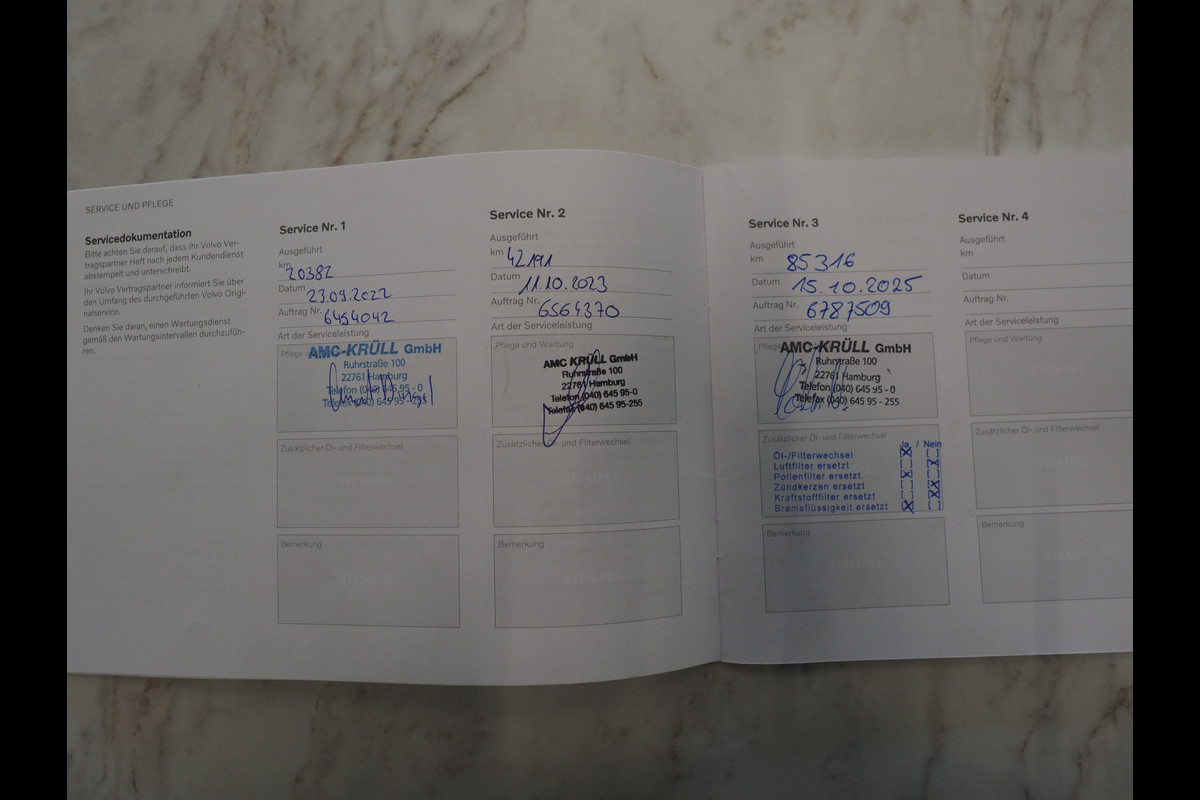 SERVICE UND PFLEGE
Servicedokumentation
Bitte achten Sie darauf, dass Ihr Volvo Ver-
tragspartner Heft nach jedem Kundendienst
abstempelt und unterschreibt.
Ihr Volvo Vertragspartner informiert Sie über
den Umfang des durchgeführten Volvo Origi-
nalservice.
Denken Sie daran, einen Wartungsdienst
gemäß den Wartungsintervallen durchzufüh-
ren.
Service Nr. 1
Ausgeführt
km 20382
Datum 23.09.2022
Auftrag Nr. 6454042
Art der Serviceleistung
Pflege u
AMC-KRÜLL GmbH
Ruhrstraße 100
22761 Hamburg
Telefon (040) 645 95 - 0
Telefax (040) 645 95 - 255
Zusätzlicher Öl- und Filterwechsel
STEMPEL
Bemerkung
STEMPEL
Service Nr. 2
Ausgeführt
km 42191
Datum 11.10.2023
Auftrag Nr. 6564370
Art der Serviceleistung
Pflege und Wartung
AMC KRÜLL GmbH
Ruhrstraße 100
22761 Hamburg
Telefon (040) 645 95-0
Telefax (040) 645 95-255
Zusätzlicher Öl- und Filterwechsel
STEMPEL
Bemerkung
STEMPEL
Service Nr. 3
Ausgeführt
km 85316
Datum 15.10.2025
Auftrag Nr. 6787509
Art der Serviceleistung
Pflege
AMC-KRÜLL GmbH
Ruhrstraße 100
22761 Hamburg
Telefon (040) 645 95 - 0
Telefax (040) 645 95 - 255
Zusätzlicher Öl- und Filterwechsel
Ja / Nein
Öl-/Filterwechsel [X] [ ]
Luftfilter ersetzt [ ] [X]
Pollenfilter ersetzt [X] [ ]
Zündkerzen ersetzt [ ] [X]
Kraftstofffilter ersetzt [ ] [X]
Bremsflüssigkeit ersetzt [X] [ ]
Bemerkung
STEMPEL
Service Nr. 4
Ausgeführt
km
Datum
Auftrag Nr.
Art der Serviceleistung
Pflege und Wartung
STEMPEL
Zusätzlicher Öl- und Filterwechsel
STEMPEL
Bemerkung
STEMPEL